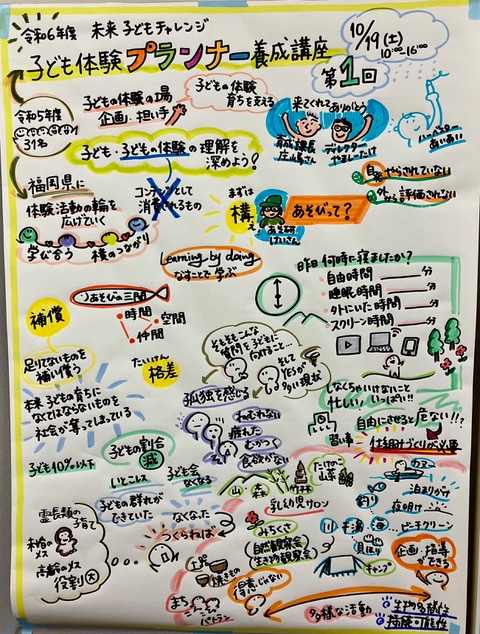 令和6年度 未来子どもチャレンジ
子ども体験プランナー養成講座
10/19(土)
10:00-16:00
第1回
令和5年度
31名
子どもの体験の場
企画 担い手
子どもの体験
育ちを支える
来てくれてありがとう
育成課長
ディレクター
やましたけ
子ども・子どもの体験の理解を
深めよう?
やらされていない
外から評価されない
福岡県に
体験活動の輪を
広げていく
コンテンツとして
消費されるもの
学び合う 横のつながり
まずは
構え
あそびって?
あそ研
Learning by doing
なすことで学ぶ
昨日 何時に寝ましたか?
自由時間 分
睡眠時間 分
外にいた時間 分
スクリーン時間 分
あそびの三間
時間
空間
仲間
補償
足りてないものを
補い償う
たいけん
格差
そもそもこんな
質問を子どもに
そして
YESが
多い現状
本来子どもの育ちに
なくてはならないものを
社会が奪ってしまっている
孤独を感じる
ねむれない
疲れた
むかつく
食欲がない
しなくちゃいけないこと
忙しい!いっぱい!!
自由にさせると危ない!!?
習い事
仕組みづくりが必要
子どもの割合
減
子ども10%以下
いとこレス
子ども会
なくなる
子どもの群れが
できていた
なくなった
つくられば
山
森
竹林
たけの子
山菜
乳幼児サロン
みちくさ
自然観察会
生物観察会
カヌー
釣り
泊まりがけ
夜明け
川
干潟
海
ビーチクリーン
貝ほり
キャンプ
企画・指導
ができる
霊長類の
子育て
未婚の
メス
高齢のメス
役割大
土器
焼きもの
まち
パトラン
得意じゃない
多様な活動
生物多様性
持続可能性